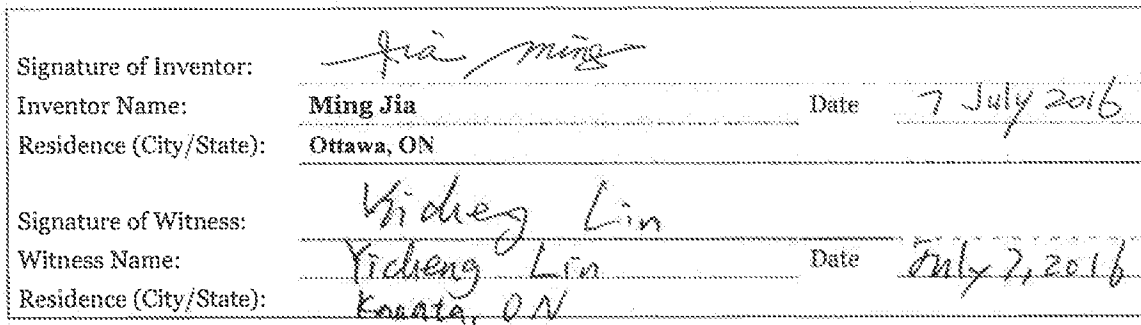 Signature of Inventor: Jia Ming
Inventor Name: Ming Jia Date 7 July 2016
Residence (City/State): Ottawa, ON
Signature of Witness: Yicheng Lin
Witness Name: Yicheng Lin Date July 7, 2016
Residence (City/State): Kanata, ON